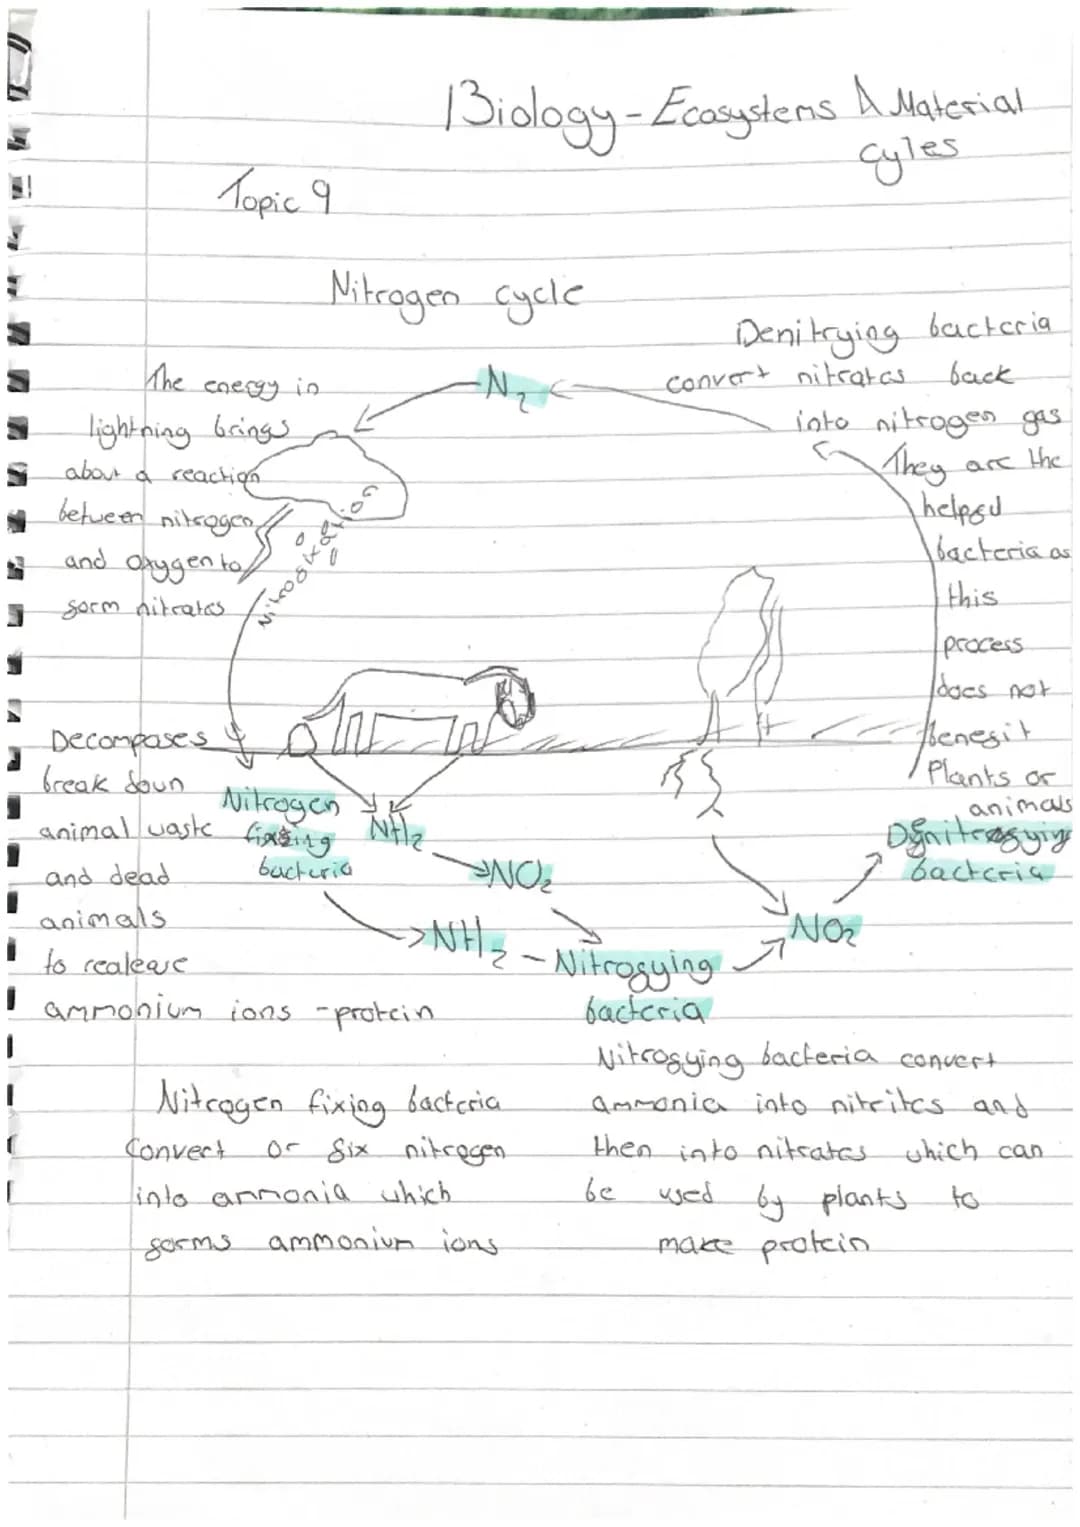 Biology - Ecosystems & Material
cyles
Topic 9
Nitrogen cycle
The energy in
lightning brings
about a reaction
between nitrogen
and oxygen to
form nitrates
N2
Denitrying bacteria
convert nitrates back
into nitrogen gas
They are the
bacteria as
this
process
does not
benefit
Plants or
animals
Decomposes
break down
animal waste
and dead
animals
to realease
ammonium ions - protein
Nitrogen
fixing
bacteria
NH2
NO2
NH2 - Nitrofying
bacteria
NO2
bacteria
Nitrogen fixing bacteria
Convert or fix nitrogen
into ammonia which
forms ammonium ions
Nitrofying bacteria convert
ammonia into nitrites and
then into nitrates which can
be used by plants to
make protein